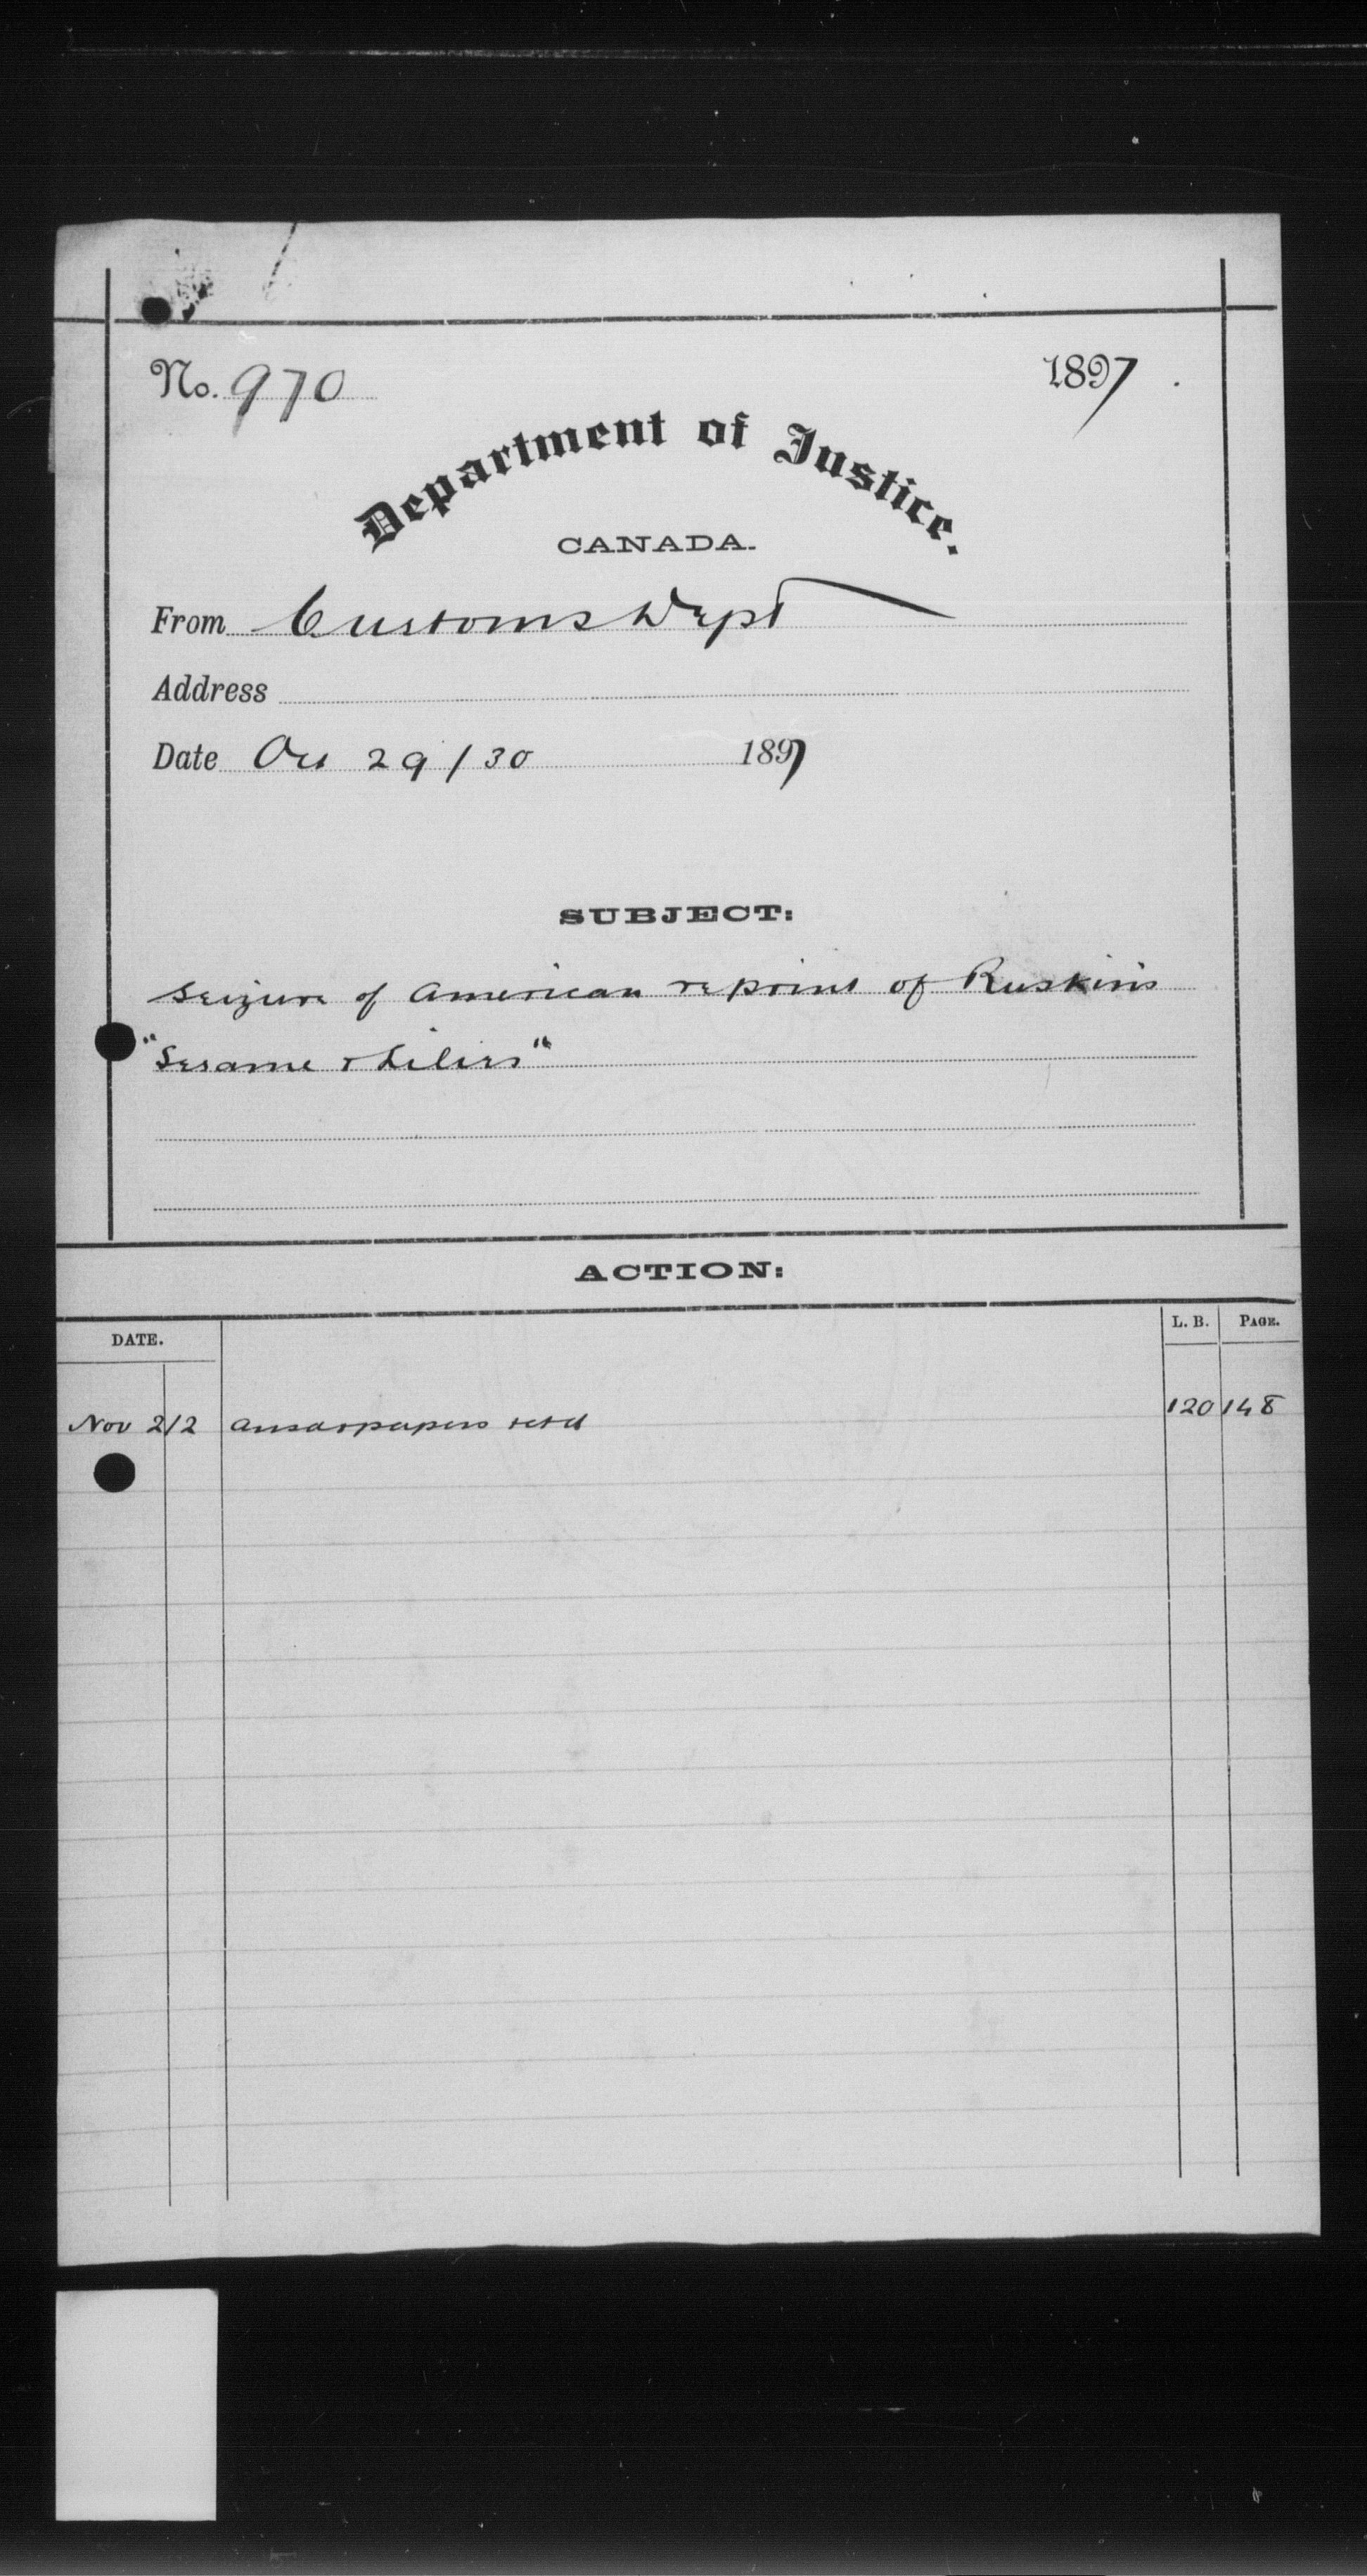 No. 970 1897
Department of Justice.
CANADA.
From Customs Dept
Address
Date Oct 29/30 1897
SUBJECT:
Seizure of American reprint of Ruskin's
"Sesame & Lilies"
ACTION:
DATE. L. B. PAGE.
Nov 2/2 ansd & papers retd 120 148